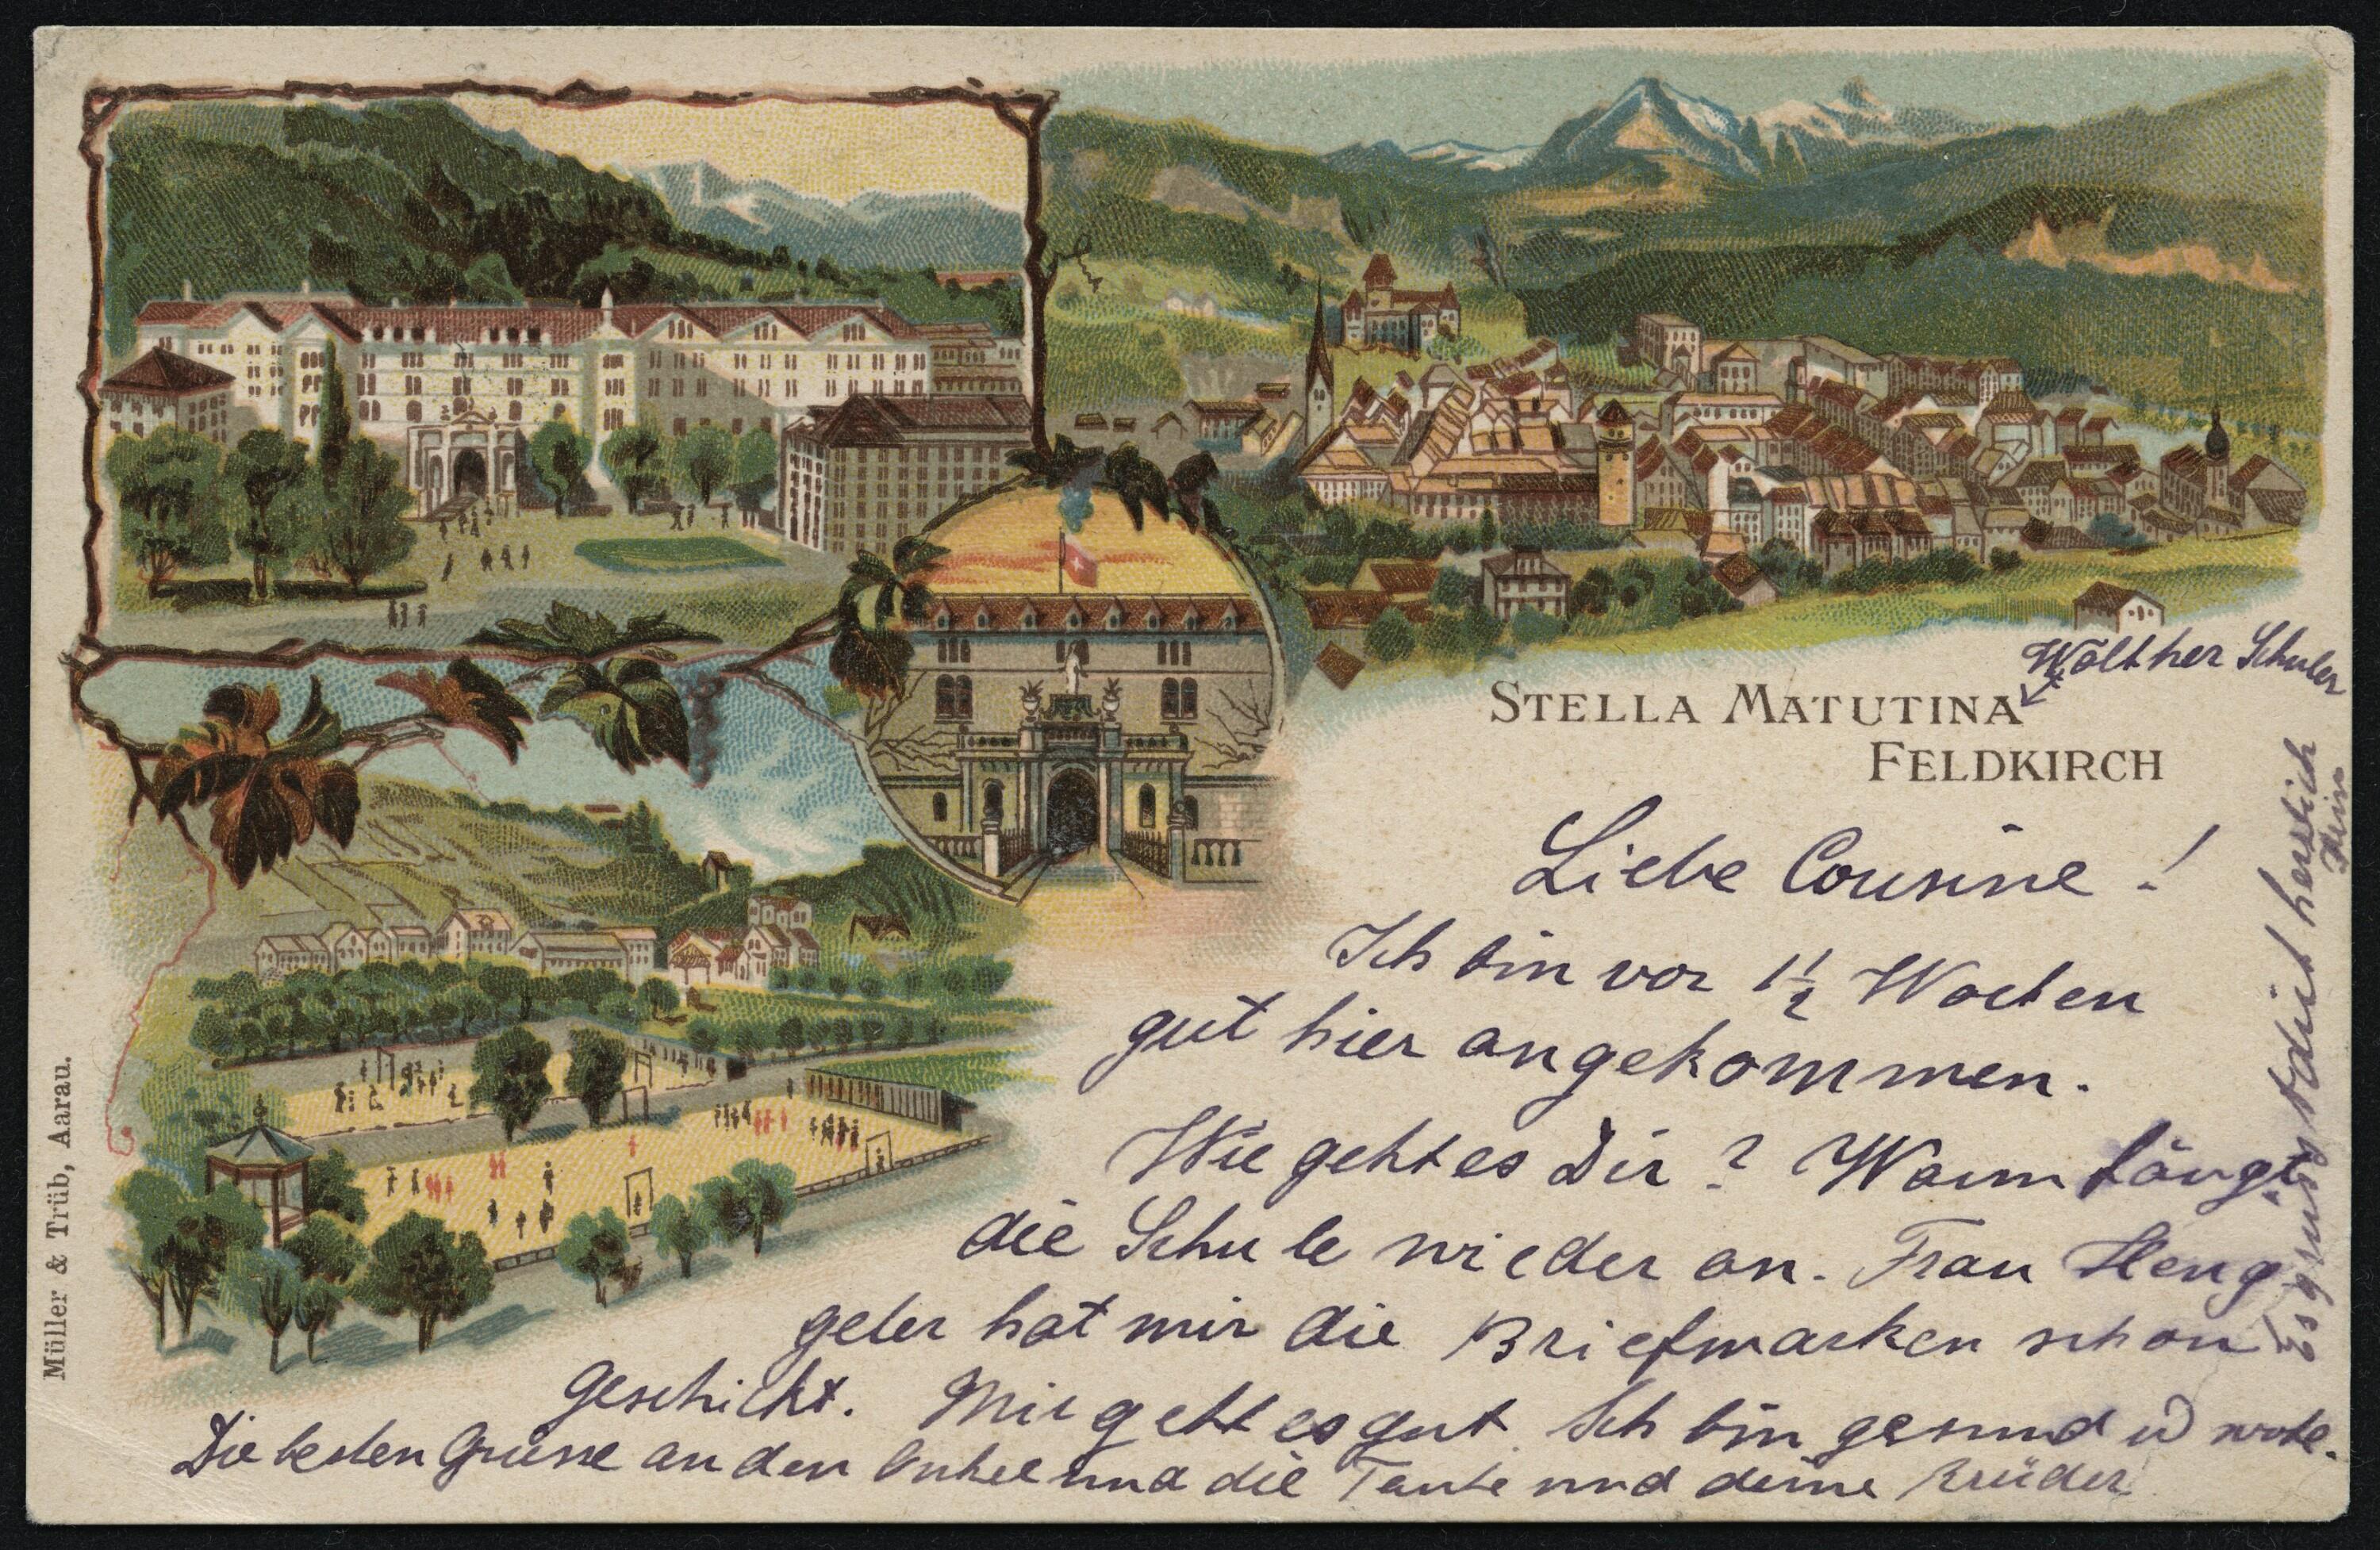 STELLA MATUTINA
FELDKIRCH
Walther Schuler
Liebe Cousine!
Ich bin vor 1½ Wochen
gut hier angekommen.
Wie geht es Dir? Wann fängt
die Schule wieder an. Frau Heng
geler hat mir die Briefmarken schon
geschickt. Mir geht es gut. Ich bin gesund u wohl.
Die besten Grüsse an den Onkel und die Tante und deine Brüder
Es grüsst dich herzlich
Dein
Müller & Trüb, Aarau.